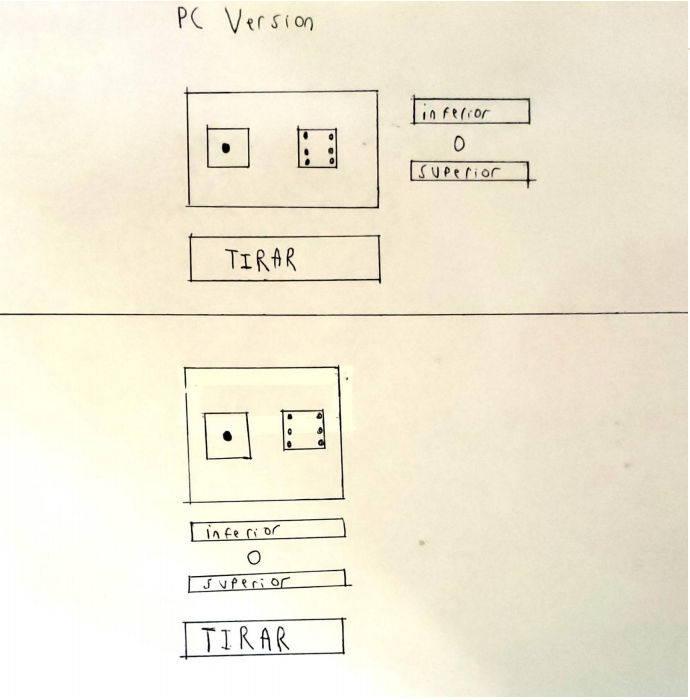 PC Version
inferior
O
superior
TIRAR
inferior
O
superior
TIRAR